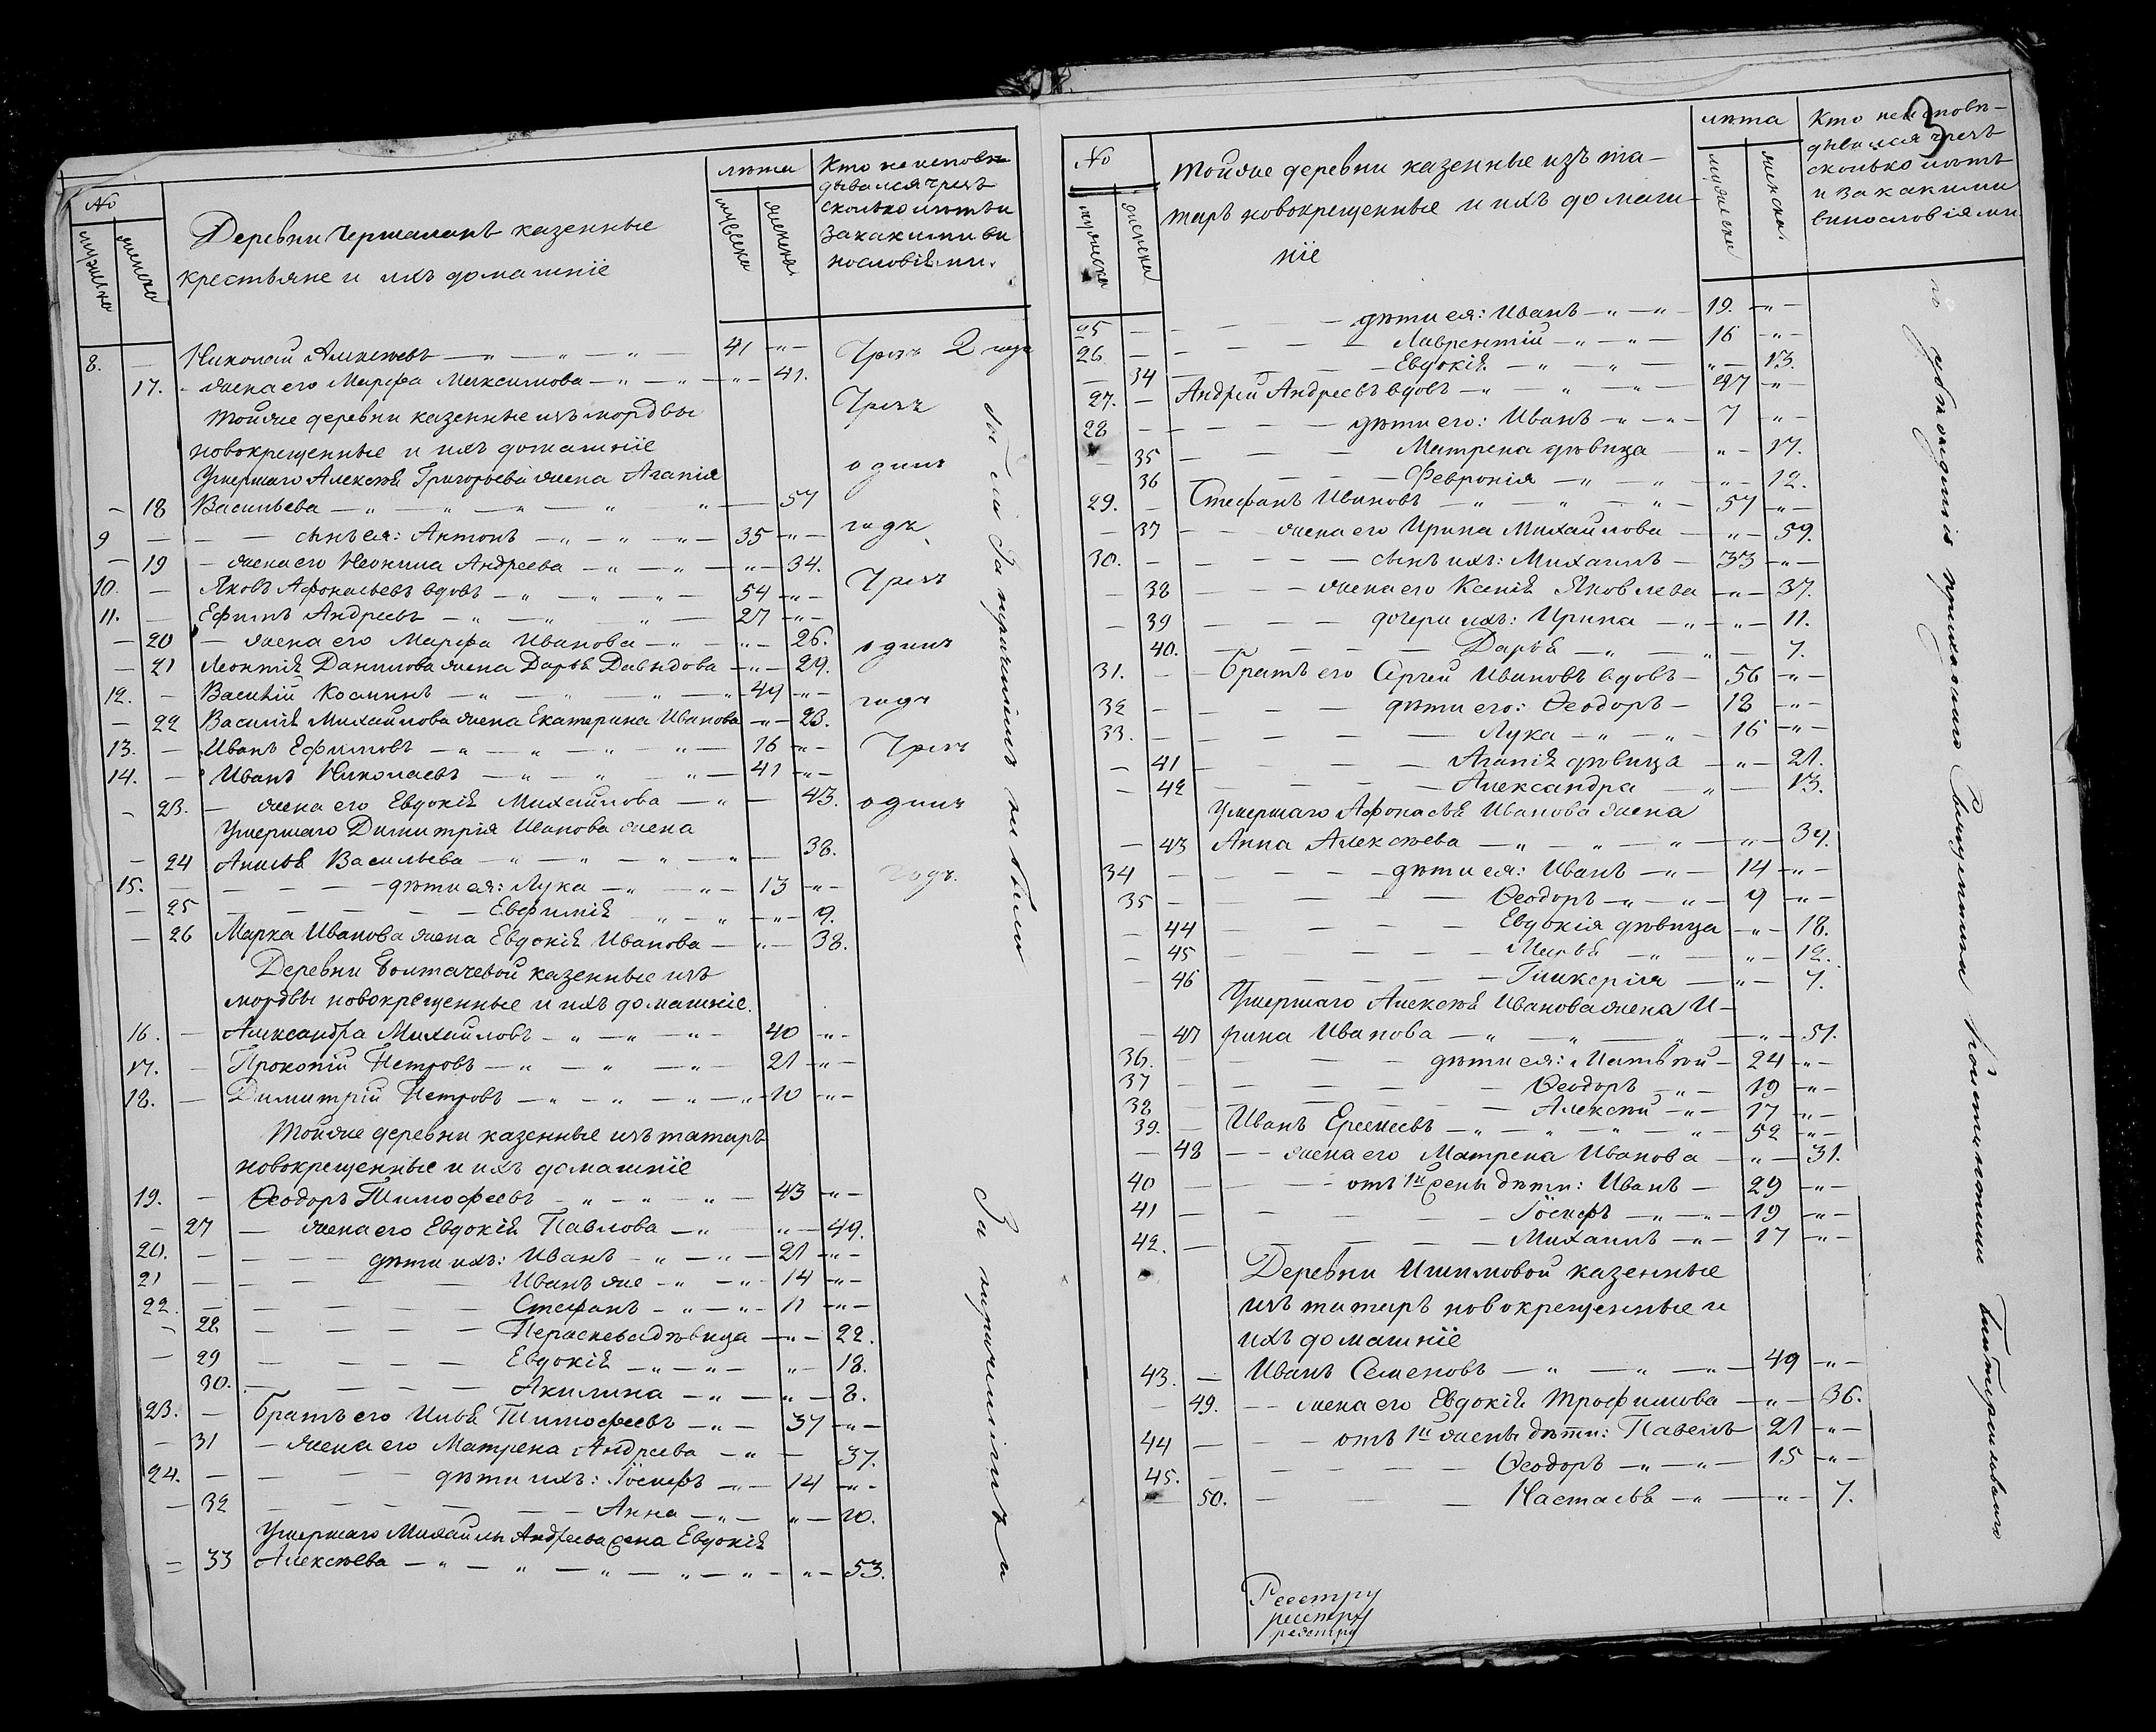 No
мужеска
женска
Деревни Чершаланъ казенные
крестьяне и ихъ домашніе
лѣта
мужеска
женска
Кто неисповѣ
дывался чрезъ
сколько лѣтъ и
за какими ви
нословіями.
8. — Николай Алексѣевъ — „ — „ — „ 41 — „ —
17. - жена его Марфа Максимова — „ — „ — „ — 41.
Тойже деревни казенные изъ мордвы
новокрещенные и ихъ домашніе
Умершаго Алексѣя Григорьева жена Агапія
— 18 Васильева — „ — „ — „ — „ „ — 57
9 — — — сынъ ея: Антонъ — „ — „ — „ — 35 — „ —
— 19 — жена его Неонила Андреева — „ — „ — „ — 34.
10. — Яковъ Афонасьевъ вдовъ — „ — „ — „ — 54 — „ —
11. — Ефимъ Андреевъ — „ — „ — „ — 27 — „ —
— 20 — жена его Марфа Иванова — „ — „ — 26.
— 21 Леонтія Данилова жена Дарья Давыдова — „ — 29.
12. — Василій Косминъ — „ — „ — „ — „ 49 — „ —
— 22 Василія Михайлова жена Екатерина Иванова — „ — 23.
13. — Иванъ Ефимовъ — „ — „ — „ — „ — 16 — „ —
14. — Иванъ Николаевъ — „ — „ — „ — 41 — „ —
- 23. — жена его Евдокія Михайлова — „ — 43.
Умершаго Димитрія Иванова жена
— 24 Анисья Васильева — „ — „ — „ — „ — 38.
15. — — — — — дѣти ея: Лука — „ — „ — 13 — „ —
— 25 — — — — — Евфимія „ — „ — „ — 9.
— 26 Марка Иванова жена Евдокія Иванова — „ — 38.
Деревни Болтачевой казенные изъ
мордвы новокрещенные и ихъ домашніе.
16. — Александра Михайловъ — „ — „ — „ — 40 — „ —
17. — Прокопій Петровъ — „ — „ — „ — 21 — „ —
18. — Димитрій Петровъ — „ — „ — „ — „ — 10 — „ —
Тойже деревни казенные изъ татаръ
новокрещенные и ихъ домашніе
19. — Ѳеодоръ Тимофеевъ — „ — „ — „ — 43 — „ —
— 27 — жена его Евдокія Павлова — „ — „ — 49.
20. — — — — дѣти ихъ: Иванъ — „ — „ — 21 — „ —
21 — — — — — Иванъ же — „ — „ — 14 — „ —
22. — — — — — Стефанъ — „ — „ — 11 — „ —
— 28. — — — — Пераскева дѣвица — „ — 22.
— 29 — — — — Евдокія — „ — „ — „ — 18.
30. — — — — Акилина — „ — „ — 8.
23. — Братъ его Илья Тимофеевъ — „ — 37 — „ —
— 31 — жена его Матрена Андреева — „ — 37.
24. — — — — дѣти ихъ: Іосифъ — „ — 14 — „ —
— 32 — — — — — Анна — „ — „ — 10.
Умершаго Михайлы Андреева жена Евдокія
— 33 Алексѣева — „ — „ — „ — „ — „ — „ — 53.
Чрезъ 2 года
Чрезъ
одинъ
годъ
Чрезъ
одинъ
годъ
Чрезъ
одинъ
годъ.
3
No
мужеска
женска
Тойже деревни казенные изъ та—
таръ новокрещенные и ихъ домаш—
ніе
лѣта
мужеска
женска
Кто неисповѣ—
дывался чрезъ
сколько лѣтъ
и за какими
винословіями
25 — — — — — дѣти ея: Иванъ — „ — „ — 19. — „ —
26 — — — — — Лаврентій — „ — „ — 16 — „ —
— 34 — — — — Евдокія — „ — „ — „ — 13.
27. — Андрей Андреевъ вдовъ — „ — „ — „ — 47 — „ —
28 — — — — — дѣти его: Иванъ — „ — „ — 7 — „ —
— 35 — — — — Матрена дѣвица — „ — 17.
36 — — — — Февронія — „ — „ — „ — 12.
29. — Стефанъ Ивановъ — „ — „ — „ — „ — 57 — „ —
— 37 — — жена его Ирина Михайлова — „ — 59.
30. — — — — — сынъ ихъ: Михаилъ — 33 — „ —
— 38 — — — жена его Ксенія Яковлева — „ — 37.
— 39 — — — — дочери ихъ: Ирина — „ — „ — 11.
40. — — — — Дарья — „ — „ — 7.
31. — — Братъ его Сергій Ивановъ вдовъ — 56 — „ —
32 — — — — дѣти его: Ѳеодоръ — 18 — „ —
33. — — — — Лука — „ — „ — 16 — „ —
— 41 — — — — Агапія дѣвица — „ — 21.
— 42 — — — — Александра — „ — 13.
Умершаго Афонасья Иванова жена
— 43 Анна Алексѣева — „ — „ — „ — „ — 39.
34 — — — — — дѣти ея: Иванъ — „ — 14 — „ —
35 — — — — — Ѳеодоръ — „ — „ — 9 — „ —
— 44 — — — — Евдокія дѣвица — „ — 18.
— 45 — — — — Марья — „ — „ — 12.
— 46 — — — — Гликерія — „ — 7.
Умершаго Алексѣя Иванова жена И—
— 47 рина Иванова — „ — „ — „ — „ — 51.
36. — — — — дѣти ея: Матвѣй — 24 — „ —
37 — — — — Ѳеодоръ — „ — 19 — „ —
38 — — — — Алексѣй — „ — 17 — „ —
39. — Иванъ Еремеевъ — „ — „ — „ — „ — 52 — „ —
— 48 — — жена его Матрена Иванова — „ — 31.
40 — — — — отъ 1й жены дѣти: Иванъ — 29 — „ —
41 — — — — — Іосифъ — „ — „ — 19 — „ —
42. — — — — — Михаилъ — „ — 17 — „ —
Деревни Ишимовой казенные
изъ татаръ новокрещенные и
ихъ домашніе
43. — Иванъ Семеновъ — „ — „ — „ — 49 — „ —
— 49. — — жена его Евдокія Трофимова — „ — 36.
44 — — — отъ 1й жены дѣти: Павелъ 21 — „ —
45. — — — — — Ѳеодоръ — „ — „ — 15 — „ —
— 50. — — — — Настасья — „ — „ — 7.
Реестру
реестру
реестру